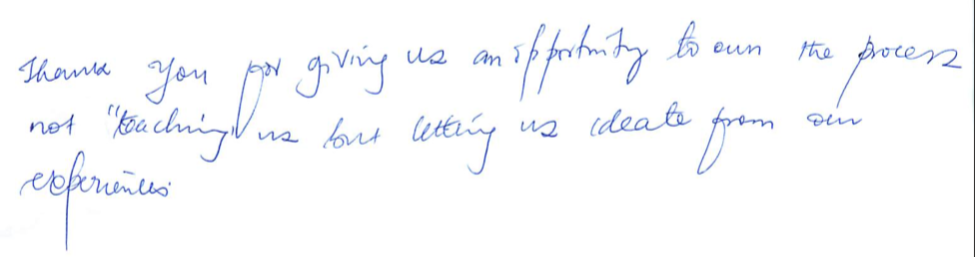 Thank you for giving us an opportunity to own the process
not "teaching" us but letting us ideate from our
experiences